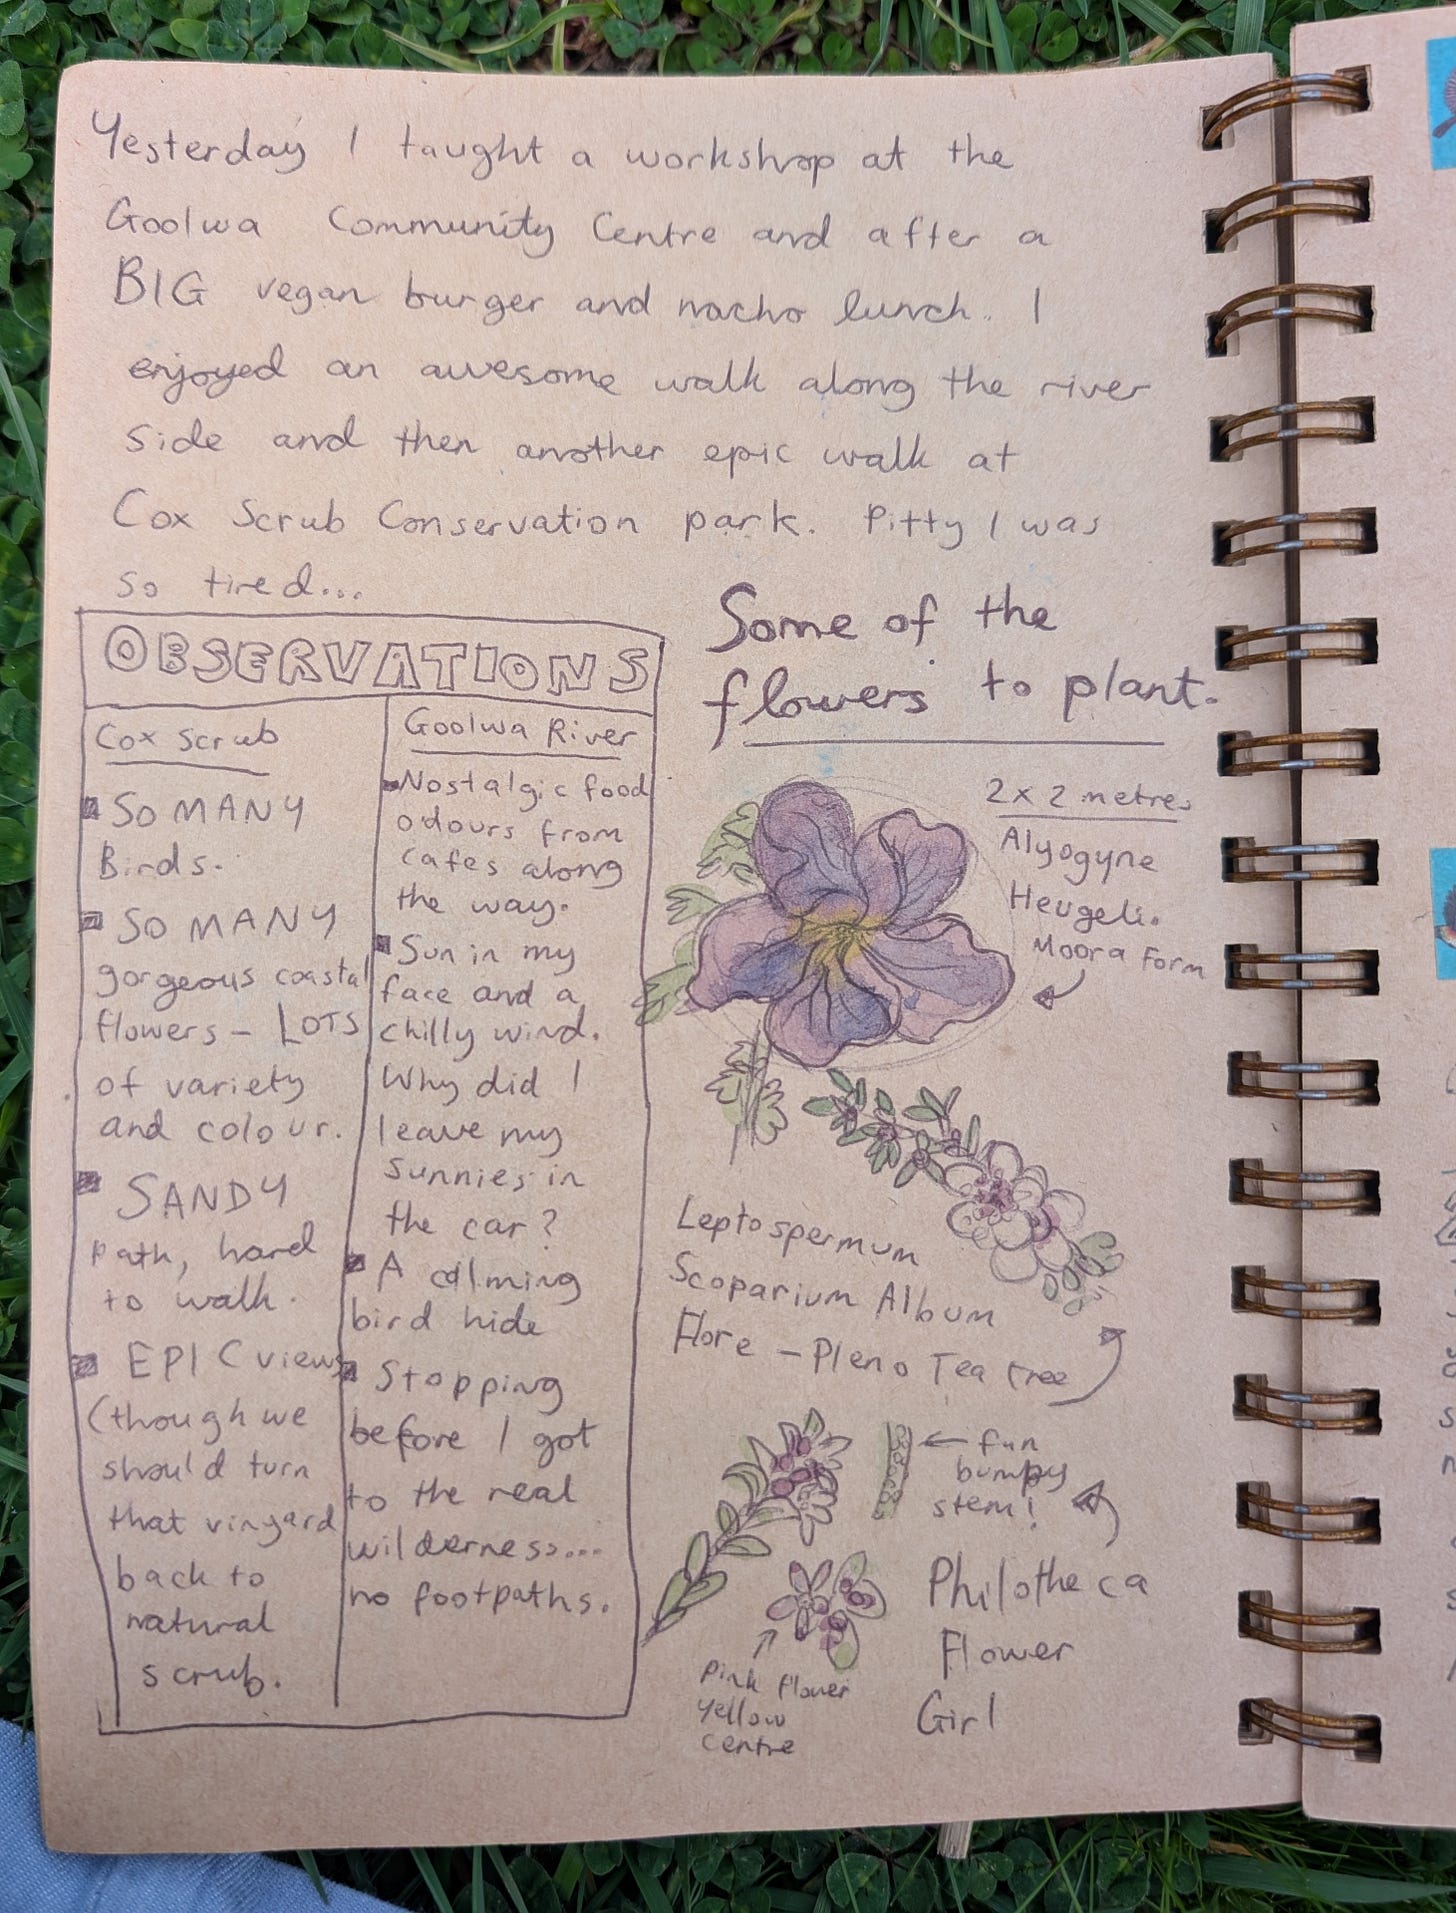 Yesterday I taught a workshop at the
Goolwa Community Centre and after a
BIG vegan burger and nacho lunch. I
enjoyed an awesome walk along the river
side and then another epic walk at
Cox Scrub Conservation park. Pitty I was
so tired...
OBSERVATIONS
Cox Scrub
SO MANY
Birds.
SO MANY
gorgeous coastal
flowers - LOTS
of variety
and colour.
SANDY
path, hard
to walk.
EPIC views
(though we
should turn
that vinyard
back to
natural
scrub.
Goolwa River
Nostalgic food
odours from
cafes along
the way.
Sun in my
face and a
chilly wind.
Why did I
leave my
sunnies in
the car?
A calming
bird hide
Stopping
before I got
to the real
wilderness...
no footpaths.
Some of the
flowers to plant.
2x2 metres
Alyogyne
Heugeli.
Moora Form
Leptospermum
Scoparium Album
Flore - Pleno Tea tree
fun
bumpy
stem!
Philotheca
Flower
Girl
Pink flower
yellow
centre